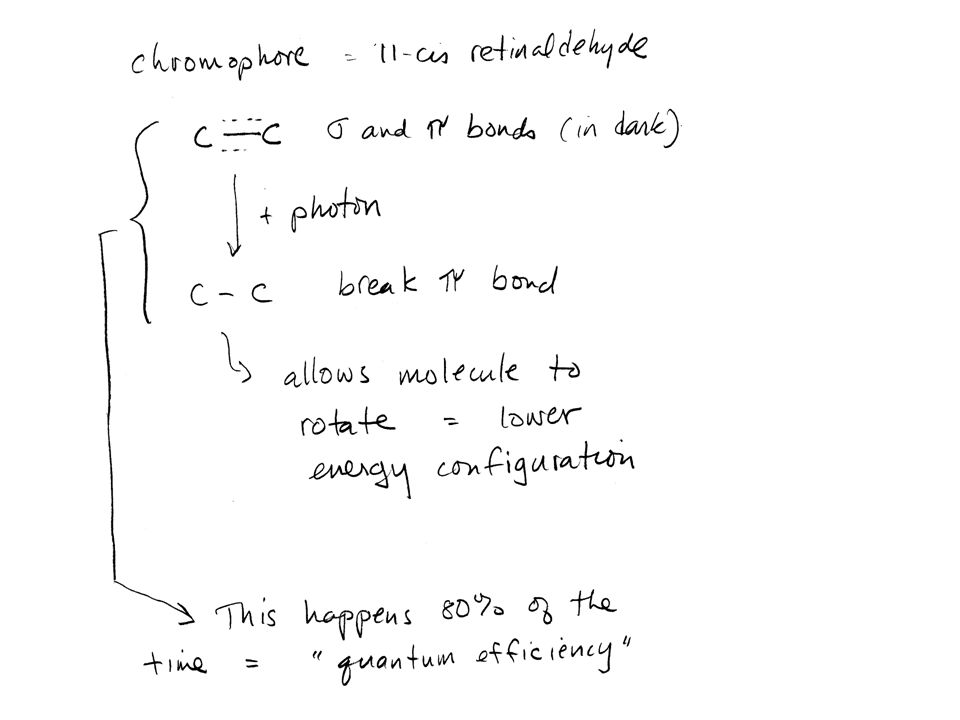 chromophore = 11-cis retinaldehyde
C = C σ and π bonds (in dark)
+ photon
C - C break π bond
allows molecule to
rotate = lower
energy configuration
This happens 80% of the
time = "quantum efficiency"